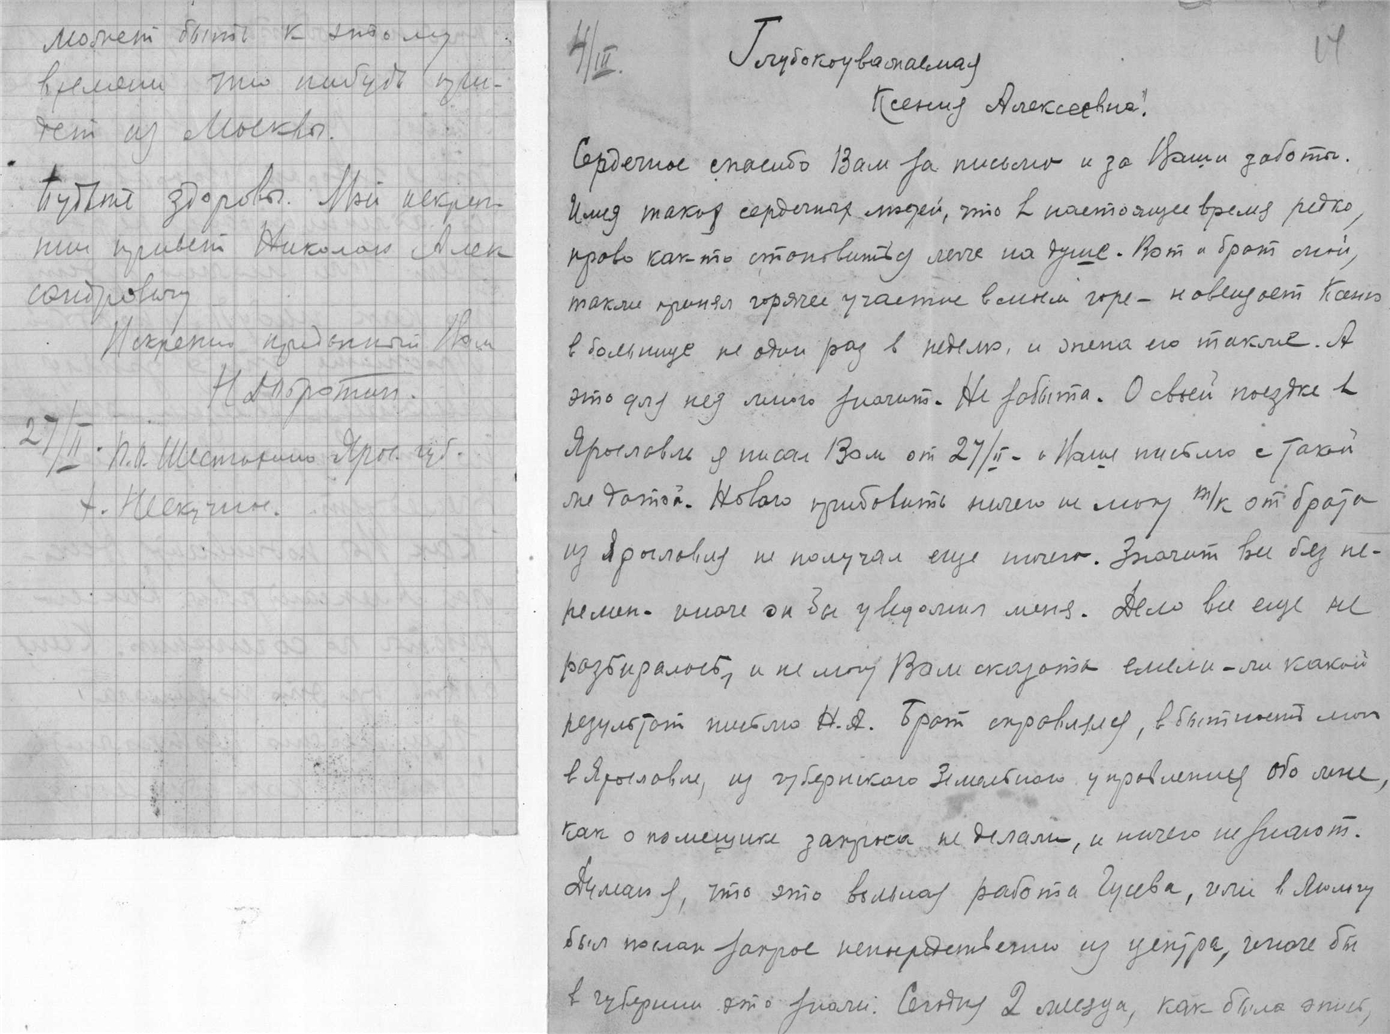 может быть к этому
времени что нибудь при-
дет из Москвы.
Будьте здоровы. Мой искрен-
ний привет Николаю Алек
сандровичу
Искренно преданный Вам
27/II. п.о. Шестихино Яросл. губ.
х. Нескучное.
4/III.
Глубокоуважаемая
Ксения Алексеевна!
Сердечное спасибо Вам за письмо и за Ваши заботы.
Имея таких сердечных людей, что в настоящее время редко,
право как-то становиться легче на душе. Вот и брат мой,
также принял горячее участие в моем горе – навещает Ксению
в больнице не один раз в неделю, и жена его также. А
это для нея много значит. Не забыта. О своей поездке в
Ярославль я писал Вам от 27/II – и Ваше письмо с такой
же датой. Нового прибавить ничего не могу т/к от брата
из Ярославля не получал еще ничего. Значит все без пе-
ремен – иначе он бы уведомил меня. Дело все еще не
разбиралось, и не могу Вам сказать имели-ли какой
результат письмо Н.А. Брат справлялся, в бытность мою
в Ярославле, из губернского Земельного управления обо мне,
как о помещике запроса не делали, и ничего не знают.
Думаю я, что это вольная работа Гусева, или в Мологу
был послан запрос непосредственно из центра, иначе бы
в губернии это знали. Сегодня 2 месяца, как была взята,